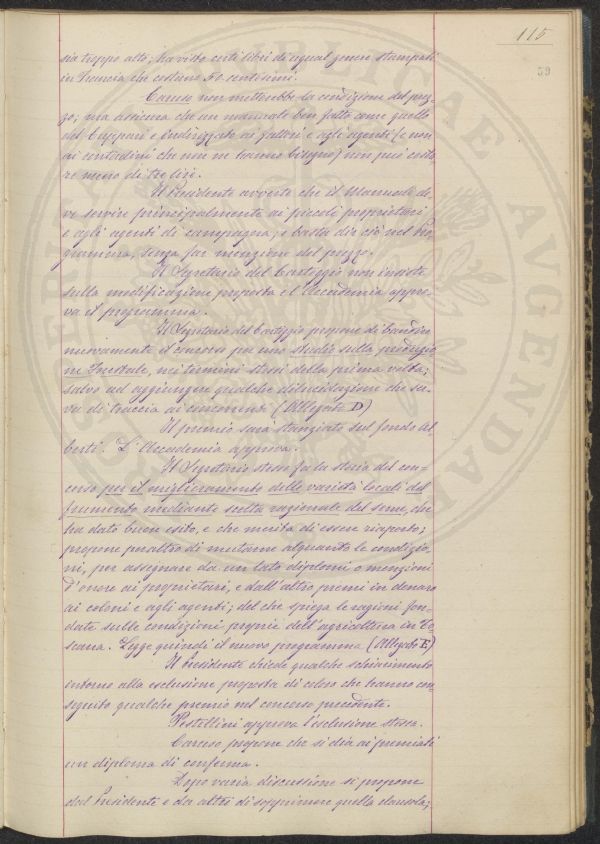 115
59
sia troppo alto; ha visto certi libri di egual genere stampati
in Francia che costano 50 centesimi.
Caruso non metterebbe la condizione del prez-
zo; ma assicura che un manuale ben fatto come quello
del e indirizzato ai fattori e agli agenti (e non
ai contadini che non ne hanno bisogno) non può costa
re meno di tre lire.
Il Presidente avverte che il Manuale de-
ve servire principalmente ai piccoli proprietari
e agli agenti di campagna; e basta dir ciò nel pro
gramma, senza far menzione del prezzo.
Il Segretario del Carteggio non insiste
sulla modificazione proposta e l'Accademia appro-
va il programma.
Il Segretario del Carteggio propone di bandire
nuovamente il concorso per uno studio sulla produzio
ne fruttale, nei termini stessi della prima volta;
salvo ad aggiungere qualche dilucidazione che ser-
va di traccia ai concorrenti (Allegato D)
Il premio sarà stanziato sul fondo Al
berti. L'Accademia approva.
Il Segretario stesso fa la storia del con-
corso per il miglioramento delle varietà locali del
frumento mediante scelta razionale del seme, che
ha dato buon esito, e che merita di essere riaperto;
propone peraltro di mutarne alquanto le condizio
ni, per assegnare da un lato diplomi o menzioni
d'onore ai proprietari, e dall'altro premi in denaro
ai coloni e agli agenti; del che spiega le ragioni fon-
date sulle condizioni proprie dell'agricoltura in To-
scana. Legge quindi il nuovo programma (Allegato E)
Il Presidente chiede qualche schiarimento
intorno alla esclusione proposta di coloro che hanno con-
seguito qualche premio nel concorso precedente.
Pestellini approva l'esclusione stessa.
Caruso propone che si dia ai premiati
un diploma di conferma.
Dopo varia discussione si propone
dal Presidente e da altri di sopprimere quella clausola;